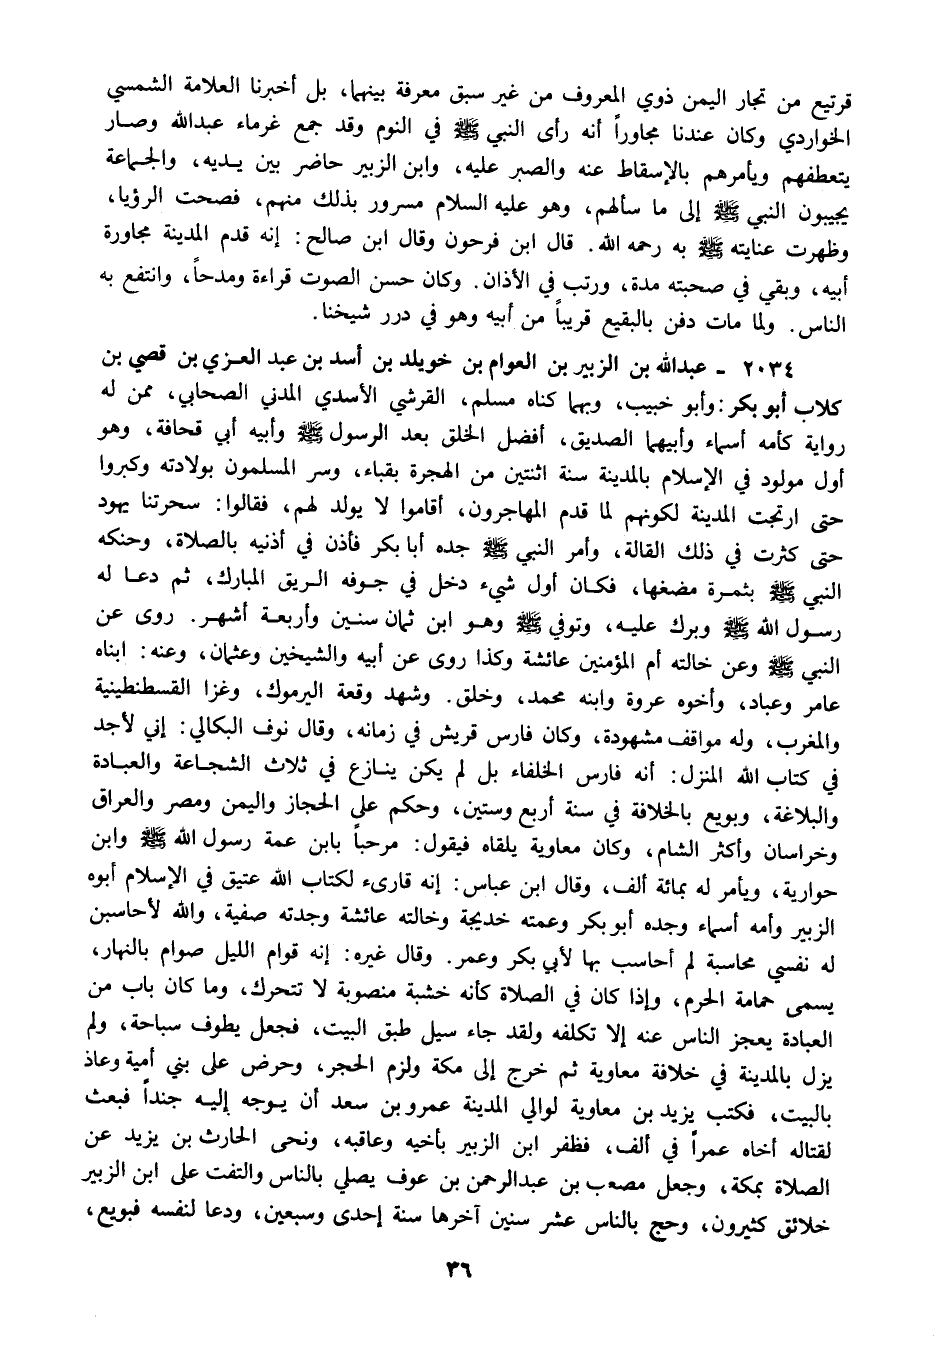 قرتيع من تجار اليمن ذوي المعروف من غير سبق معرفة بينهما، بل أخبرنا العلامة الشمسي
الخواردي وكان عندنا مجاوراً أنه رأى النبي ﷺ في النوم وقد جمع غرماء عبدالله وصار
يتعطفهم ويأمرهم بالإسقاط عنه والصبر عليه، وابن الزبير حاضر بين يديه، والجماعة
يجيبون النبي ﷺ إلى ما سألهم، وهو عليه السلام مسرور بذلك منهم، فصحت الرؤيا،
وظهرت عنايته ﷺ به رحمه الله. قال ابن فرحون وقال ابن صالح: إنه قدم المدينة مجاورة
أبيه، وبقي في صحبته مدة، ورتب في الأذان. وكان حسن الصوت قراءة ومدحاً، وانتفع به
الناس. ولما مات دفن بالبقيع قريباً من أبيه وهو في درر شيخنا.
٢٠٣٤ ـ عبدالله بن الزبير بن العوام بن خويلد بن أسد بن عبد العزي بن قصي بن
كلاب أبو بكر: وأبو خبيب، وبهما كناه مسلم، القرشي الأسدي المدني الصحابي، ممن له
رواية كأمه أسماء وأبيهما الصديق، أفضل الخلق بعد الرسول ﷺ وأبيه أبي قحافة، وهو
أول مولود في الإسلام بالمدينة سنة اثنتين من الهجرة بقباء، وسر المسلمون بولادته وكبروا
حتى ارتجت المدينة لكونهم لما قدم المهاجرون، أقاموا لا يولد لهم، فقالوا: سحرتنا يهود
حتى كثرت في ذلك القالة، وأمر النبي ﷺ جده أبا بكر فأذن في أذنيه بالصلاة، وحنكه
النبي ﷺ بثمرة مضغها، فكان أول شيء دخل في جوفه الريق المبارك، ثم دعا له
رسول الله ﷺ وبرك عليه، وتوفي ﷺ وهو ابن ثمان سنين وأربعة أشهر. روى عن
النبي ﷺ وعن خالته أم المؤمنين عائشة وكذا روى عن أبيه والشيخين وعثمان، وعنه: ابناه
عامر وعباد، وأخوه عروة وابنه محمد، وخلق. وشهد وقعة اليرموك، وغزا القسطنطينية
والمغرب، وله مواقف مشهودة، وكان فارس قريش في زمانه، وقال نوف البكالي: إني لأجد
في كتاب الله المنزل: أنه فارس الخلفاء بل لم يكن ينازع في ثلاث الشجاعة والعبادة
والبلاغة، وبويع بالخلافة في سنة أربع وستين، وحكم على الحجاز واليمن ومصر والعراق
وخراسان وأكثر الشام، وكان معاوية يلقاه فيقول: مرحباً بابن عمة رسول الله ﷺ وابن
حوارية، ويأمر له بمائة ألف، وقال ابن عباس: إنه قارىء لكتاب الله عتيق في الإسلام أبوه
الزبير وأمه أسماء وجده أبو بكر وعمته خديجة وخالته عائشة وجدته صفية، والله لأحاسبن
له نفسي محاسبة لم أحاسب بها لأبي بكر وعمر. وقال غيره: إنه قوام الليل صوام بالنهار،
يسمى حمامة الحرم، وإذا كان في الصلاة كأنه خشبة منصوبة لا تتحرك، وما كان باب من
العبادة يعجز الناس عنه إلا تكلفه ولقد جاء سيل طبق البيت، فجعل يطوف سباحة، ولم
يزل بالمدينة في خلافة معاوية ثم خرج إلى مكة ولزم الحجر، وحرض على بني أمية وعاذ
بالبيت، فكتب يزيد بن معاوية لوالي المدينة عمرو بن سعد أن يوجه إليه جنداً فبعث
لقتاله أخاه عمراً في ألف، فظفر ابن الزبير بأخيه وعاقبه، ونحى الحارث بن يزيد عن
الصلاة بمكة، وجعل مصعب بن عبدالرحمن بن عوف يصلي بالناس والتفت على ابن الزبير
خلائق كثيرون، وحج بالناس عشر سنين آخرها سنة إحدى وسبعين، ودعا لنفسه فبويع،
٣٦